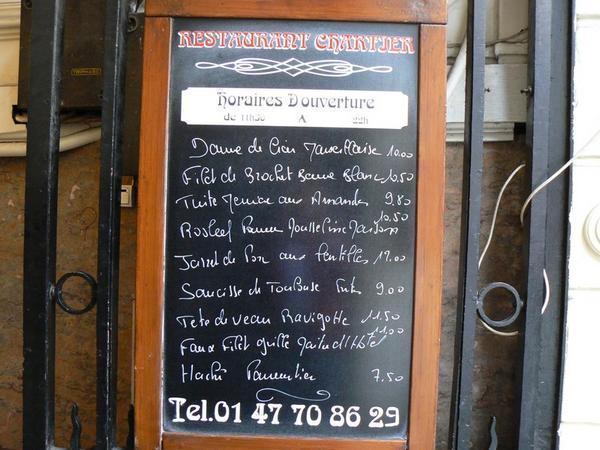 RESTAURANT CHARTIER
Horaires D'ouverture
de 11h30 A 22h
Dame de Lieu Marseillaise 10.00
Filet de Brochet Beurre Blanc 10.50
Truite Meunière aux Amandes 9.80
Rosbeef Pomme Mousseline Maison 10.50
Jarret de Porc aux lentilles 11.00
Saucisse de Toulouse frites 9.00
Tete de veau Ravigotte 11.50
Faux Filet grillé Maitre d'Hotel 11.00
Hachi Parmentier 7.50
Tel.01 47 70 86 29